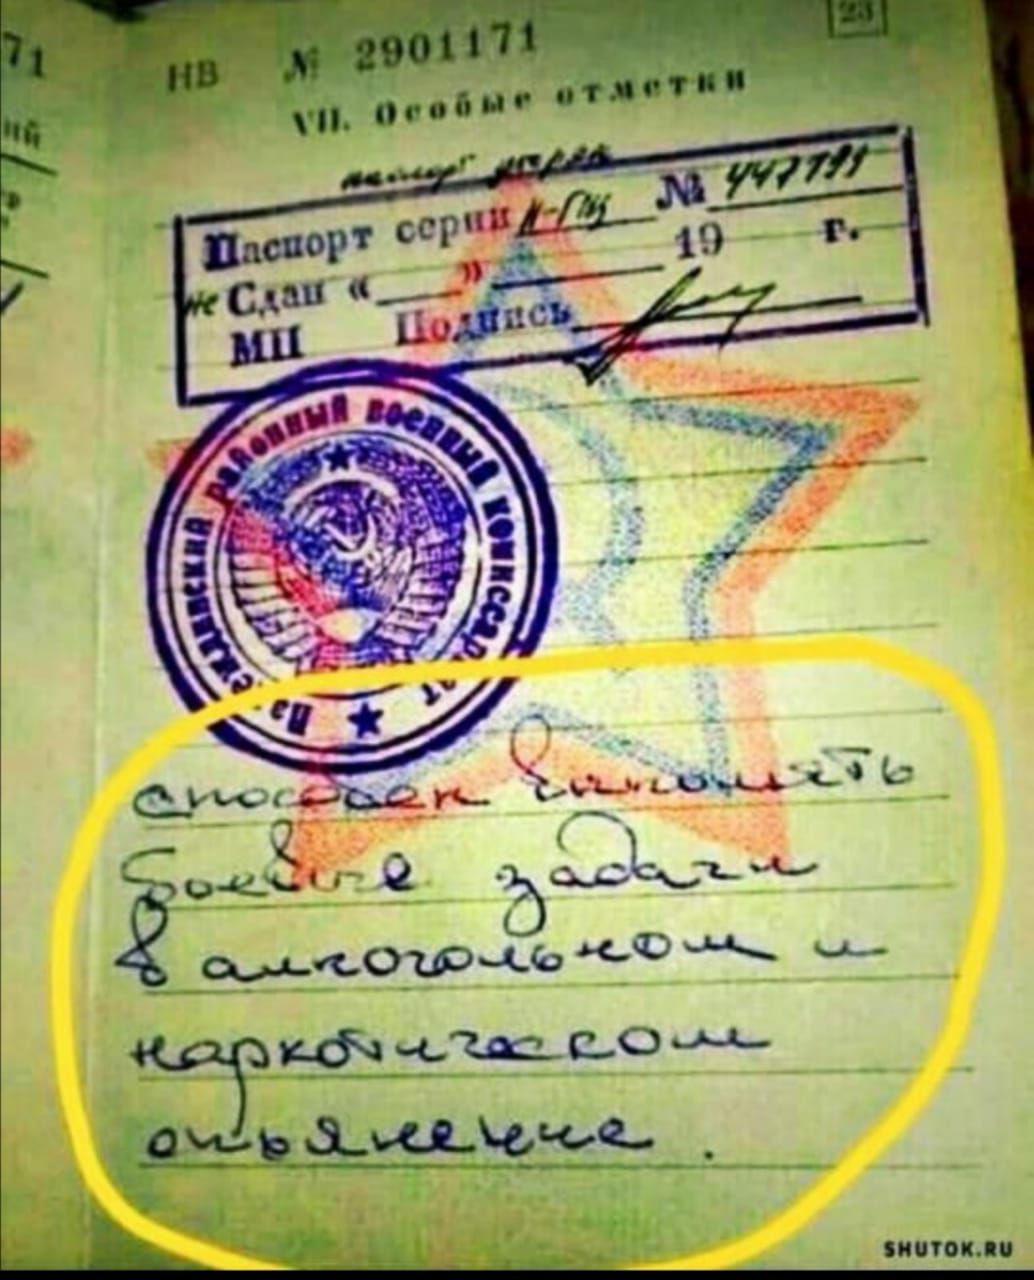 71
НВ № 2901171
23
VII. Особые отметки
ий
паспорт утерян
Паспорт серии № 447799
не Сдан « » 19 г.
МП Подпись
районный военный комиссариат
способен выполнять
боевые задачи
в алкогольном и
наркотическом
опьянение.
SHUTOK.RU